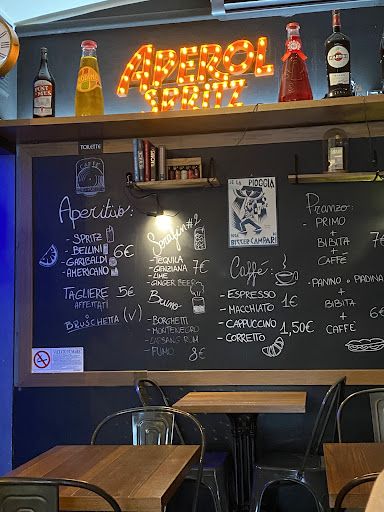 APEROL
SPRITZ
TOILETTE
CAFFÈ
Aperitivo:
- SPRITZ
- BELLINI
- GARIBALDI
- AMERICANO
6€
TAGLIERE 5€
AFFETTATI
o
BRUSCHETTA (V)
#2
- TEQUILA
- GENZIANA
- LIME
- GINGER BEER
7€
Bruno:
- BORGHETTI
- MONTENEGRO
- LAPSANG RUM
- FUMO
8€
PIOGGIA
BITTER CAMPARI
Caffé:
- ESPRESSO
- MACCHIATO 1€
- CAPPUCCINO
- CORRETTO 1,50€
Pranzo:
- PRIMO
+
BIBITA
+
CAFFÈ
7€
- PANINO o PIADINA
+
BIBITA
+
CAFFÈ
6€